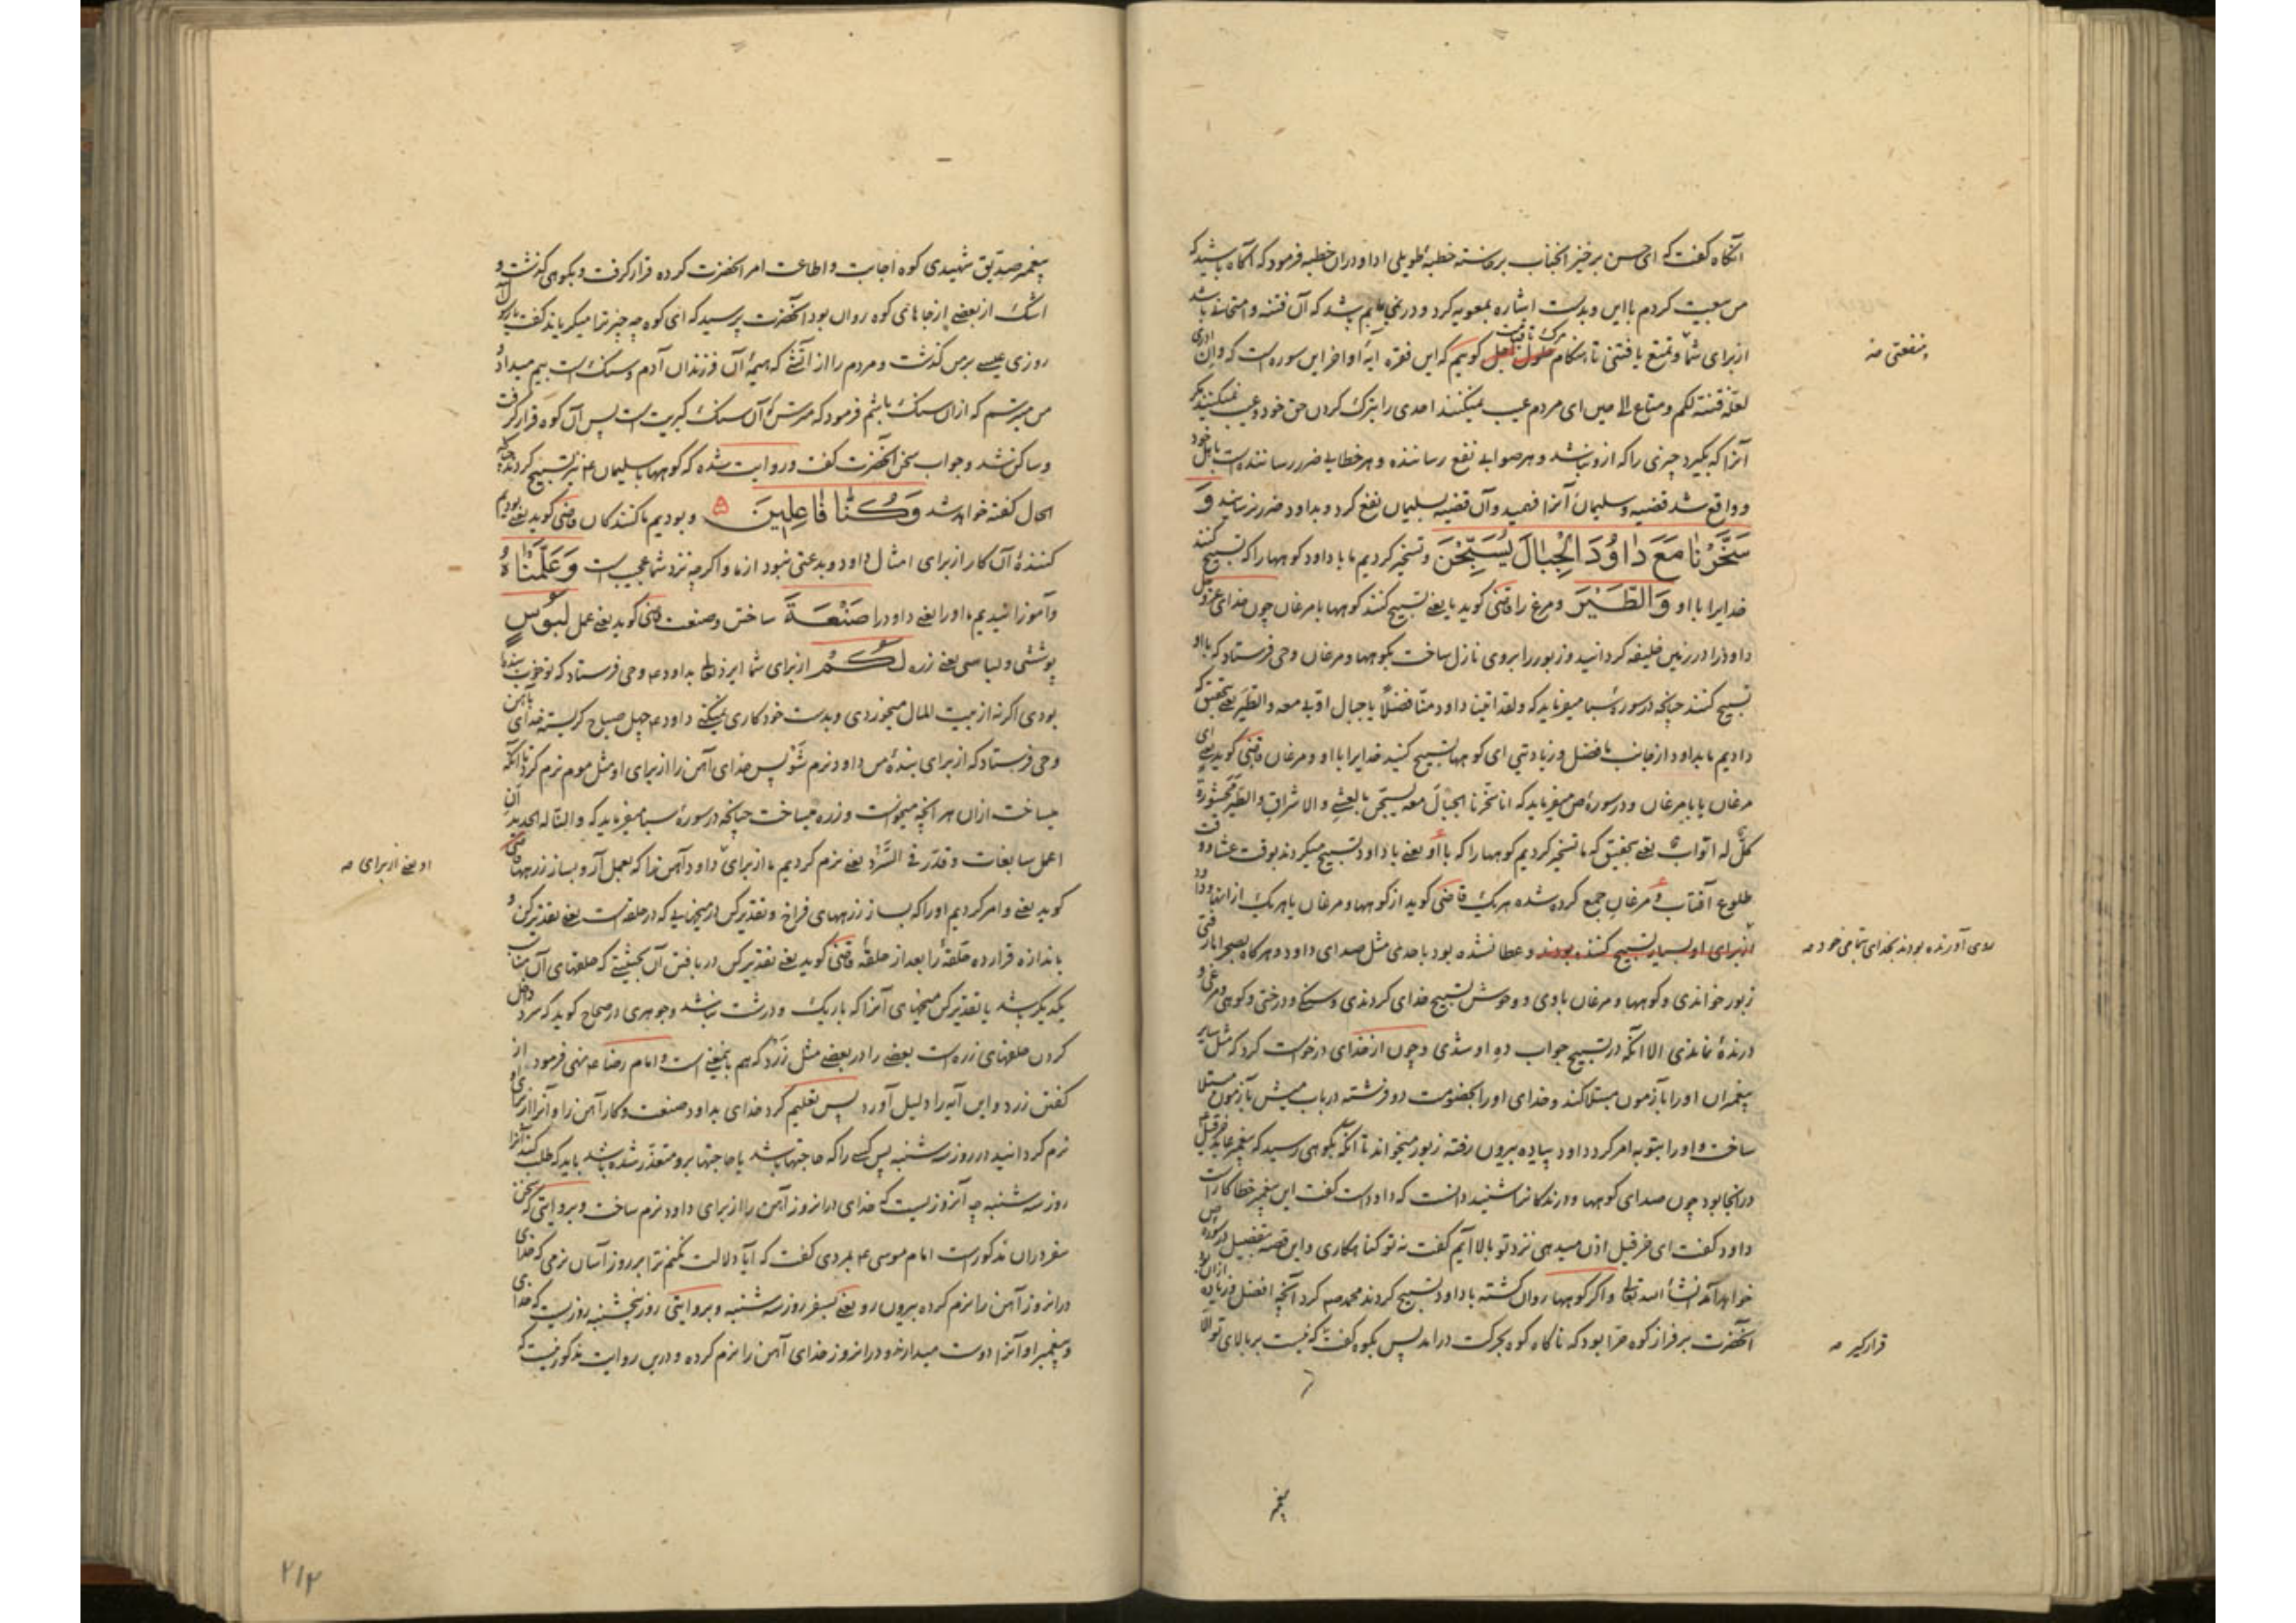 آنگاه گفت که ای حسن برخیز انجناب برخاسته خطبه طویلی ادا و دران خطبه فرمود که آگاه باشید که
من بیعت کردم با این و بدست اشاره بمعویه کرد و درنمی یابم شاید که آن فتنه و امتحانی باشد
ازبرای شما و تمتع یافتنی تا هنگام حلول اجل گوییم که این فقره ایهٔ اواخر این سوره است که وان ادری
لعلّه فتنة لکم ومتاع الی حین ای مردم عیب نمیکنند احدی را بترک کردن حق خود و عیب نمیکنند مگر
آنرا که بگیرد چیزی را که ازو نباشد و هر صوابی نفع رساننده و هر خطایی ضرر رساننده است باهل خود
و واقع شد قضیه و سلیمان آنرا فهمید و آن قضیه بسلیمان نفع کرد و بداود ضرر نرسانید وَ
سَخَّرْنٰا مَعَ دٰاوُدَ الْجِبٰالَ یُسَبِّحْنَ و تسخیر کردیم ما با داود کوهها را که تسبیح کنند
خدایرا با او وَالطَّیْرَ و مرغ را قاضی گوید یا یعنی تسبیح کنند کوهها با مرغان چون خدای عزوجل
داود را در زمین خلیفه گردانید و زبور را بروی نازل ساخت بکوهها و مرغان وحی فرستاد که با او
تسبیح کنند چنانچه در سورهٔ سبا میفرماید که ولقد اتینا داود منّا فضلاً یا جبال اوّبی معه والطیر یعنی بتحقیق که
دادیم ما بداود از جانب ما فضل و زیادتی ای کوهها تسبیح کنید خدایرا با او و مرغان قاضی گوید یعنی ای
مرغان یا با مرغان و در سورهٔ ص میفرماید که انا سخّرنا الجبالَ معه یسبّحن بالعشی والاشراق والطیر محشورة
کلّ له اوّاب یعنی بتحقیق که ما تسخیر کردیم کوهها را که با او یعنی با داود تسبیح میکردند بوقت عشا و وقت
طلوع آفتاب و مرغان جمع کرده شده هریک قاضی گوید از کوهها و مرغان یا هریک از اینها و داود
ازبرای او بسیار تسبیح کننده بودند و عطا نشده بود باحدی مثل صدای داود و هرگاه بصحرا رفتی
زبور خواندی و کوهها و مرغان باوی و وحوش تسبیح خدای کردندی و سنگی و درختی و کوهی و مرغی و
درندهٔ نماندی الا آنکه در تسبیح جواب ده او شدی و چون از خدای درخواست کرد که مثل سایر
پیغمبران اورا بآزمون مبتلا کند و خدای اورا بخصومت دو فرشته در باب میش بآزمون مبتلا
ساخت و اورا بتوبه امر کرد داود پیاده بیرون رفته زبور میخواند تا آنکه بکوهی رسید که پیغمبر عابد حزقیل
درانجا بود چون صدای کوهها و درندگانرا شنید دانست که داود است گفت این پیغمبر خطاکارست
داود گفت ای حزقیل اذن میدهی نزد تو بالا آیم گفت نه تو گناهکاری و این قصه بتفصیل در سوره ص
خواهد آمد انشاء الله تعالی و اگر کوهها روان گشته با داود تسبیح کردند محمد صه کرد آنچه افضل و زیاده ازان بود
آنحضرت بر فراز کوه حرا بود که ناگاه کوه بحرکت درامد پس بکوه گفت که نیست بر بالای تو الا
منفعتی صه
روی آورنده بودند بخدای بتمامی خود صه
قرارگیر صه
پیغمبر
پیغمبر صدیق شهیدی کوه اجابت و اطاعت امر آنحضرت کرده قرار گرفت و بکوهی گذشت و
اشک از بعضی از جاهای کوه روان بود آنحضرت پرسید که ای کوه چه چیز ترا میگریاند گفت یا رسول الله
روزی عیسی برمن گذشت و مردم را از آتشی که هیمهٔ آن فرزندان آدم و سنگ است بیم میداد و
من میترسم که ازان سنگ باشم فرمود که مترس که آن سنگ کبریت است پس آن کوه قرار گرفت
و ساکن شد و جواب سخن آنحضرت گفت و روایت شده که کوهها با سلیمان ع نیز تسبیح کردند چنانکه
الحال گفته خواهد شد وَکُنّٰا فٰاعِلِینَ و بودیم ما کنندگان قاضی گوید یعنی بودیم
کنندهٔ آن کار ازبرای امثال داود و بدعتی نبود از ما و اگرچه نزد شما عجیب است وَعَلَّمْنٰاهُ
و آموزانیدیم ما اورا یعنی داود را صَنْعَةَ ساختن و صنعت قاضی گوید یعنی عمل لَبُوسٍ
پوششی و لباسی یعنی زره لَکُمْ ازبرای شما ایزد تعالی بداود ع وحی فرستاد که تو خوب بندهٔ
بودی اگر نه از بیت المال میخوردی و بدست خود کاری نمیکنی داود ع چهل صباح گریسته خدای بآهن
وحی فرستاد که ازبرای بندهٔ من داود نرم شو پس خدای آهن را ازبرای او مثل موم نرم کرد تا آنکه
میساخت ازان هر آنچه میخواست و زره میساخت چنانچه در سورهٔ سبا میفرماید که والنّا له الحدید ان
اعمل سابغات وقدّر فی السَّرْد یعنی نرم کردیم ما ازبرای داود آهن را که بعمل آر و بساز زرهها قاضی
گوید یعنی و امر کردیم اورا که بساز زرههای فراخ و تقدیر کن در میخهایی که در حلقه است یعنی تقدیر کن و
باندازه قرار ده حلقهٔ را بعد از حلقهٔ قاضی گوید یعنی تقدیر کن در بافتن آن بحیثیتی که حلقهای آن مناسب
یکدیگر باشد یا تقدیر کن میخهای آنرا که باریک و درشت نباشد و جوهری در صحاح گوید که سرد داخل
کردن حلقهای زره است بعضی را در بعضی مثل زَرَد که هم باینمعنی است و امام رضا ع منهی فرمود از
گفتن زرد و این آیه را دلیل آورد پس تعلیم کرد خدای بداود صنعت و کار آهن را و آنرا ازبرای او
نرم گردانید در روز سه شنبه پس کسی را که حاجتها باشد یا حاجتها برو متعذر شده باشد باید که طلب کند آنرا
روز سه شنبه چه آنروزیست که خدای درانروز آهن را ازبرای داود نرم ساخت و بروایتی که سخن
سفر دران مذکورست امام موسی ع بمردی گفت که آیا دلالت نکنم ترا بر روز آسان نرمی که خدای
درانروز آهن را نرم کرده بیرون رو یعنی بسفر روز سه شنبه و بروایتی روز پنجشنبه روزیست که خدای
و پیغمبر او آنرا دوست میدارند و درانروز خدای آهن را نرم کرده و درین روایت مذکور نیست که
او یعنی ازبرای صه
۲۱۲